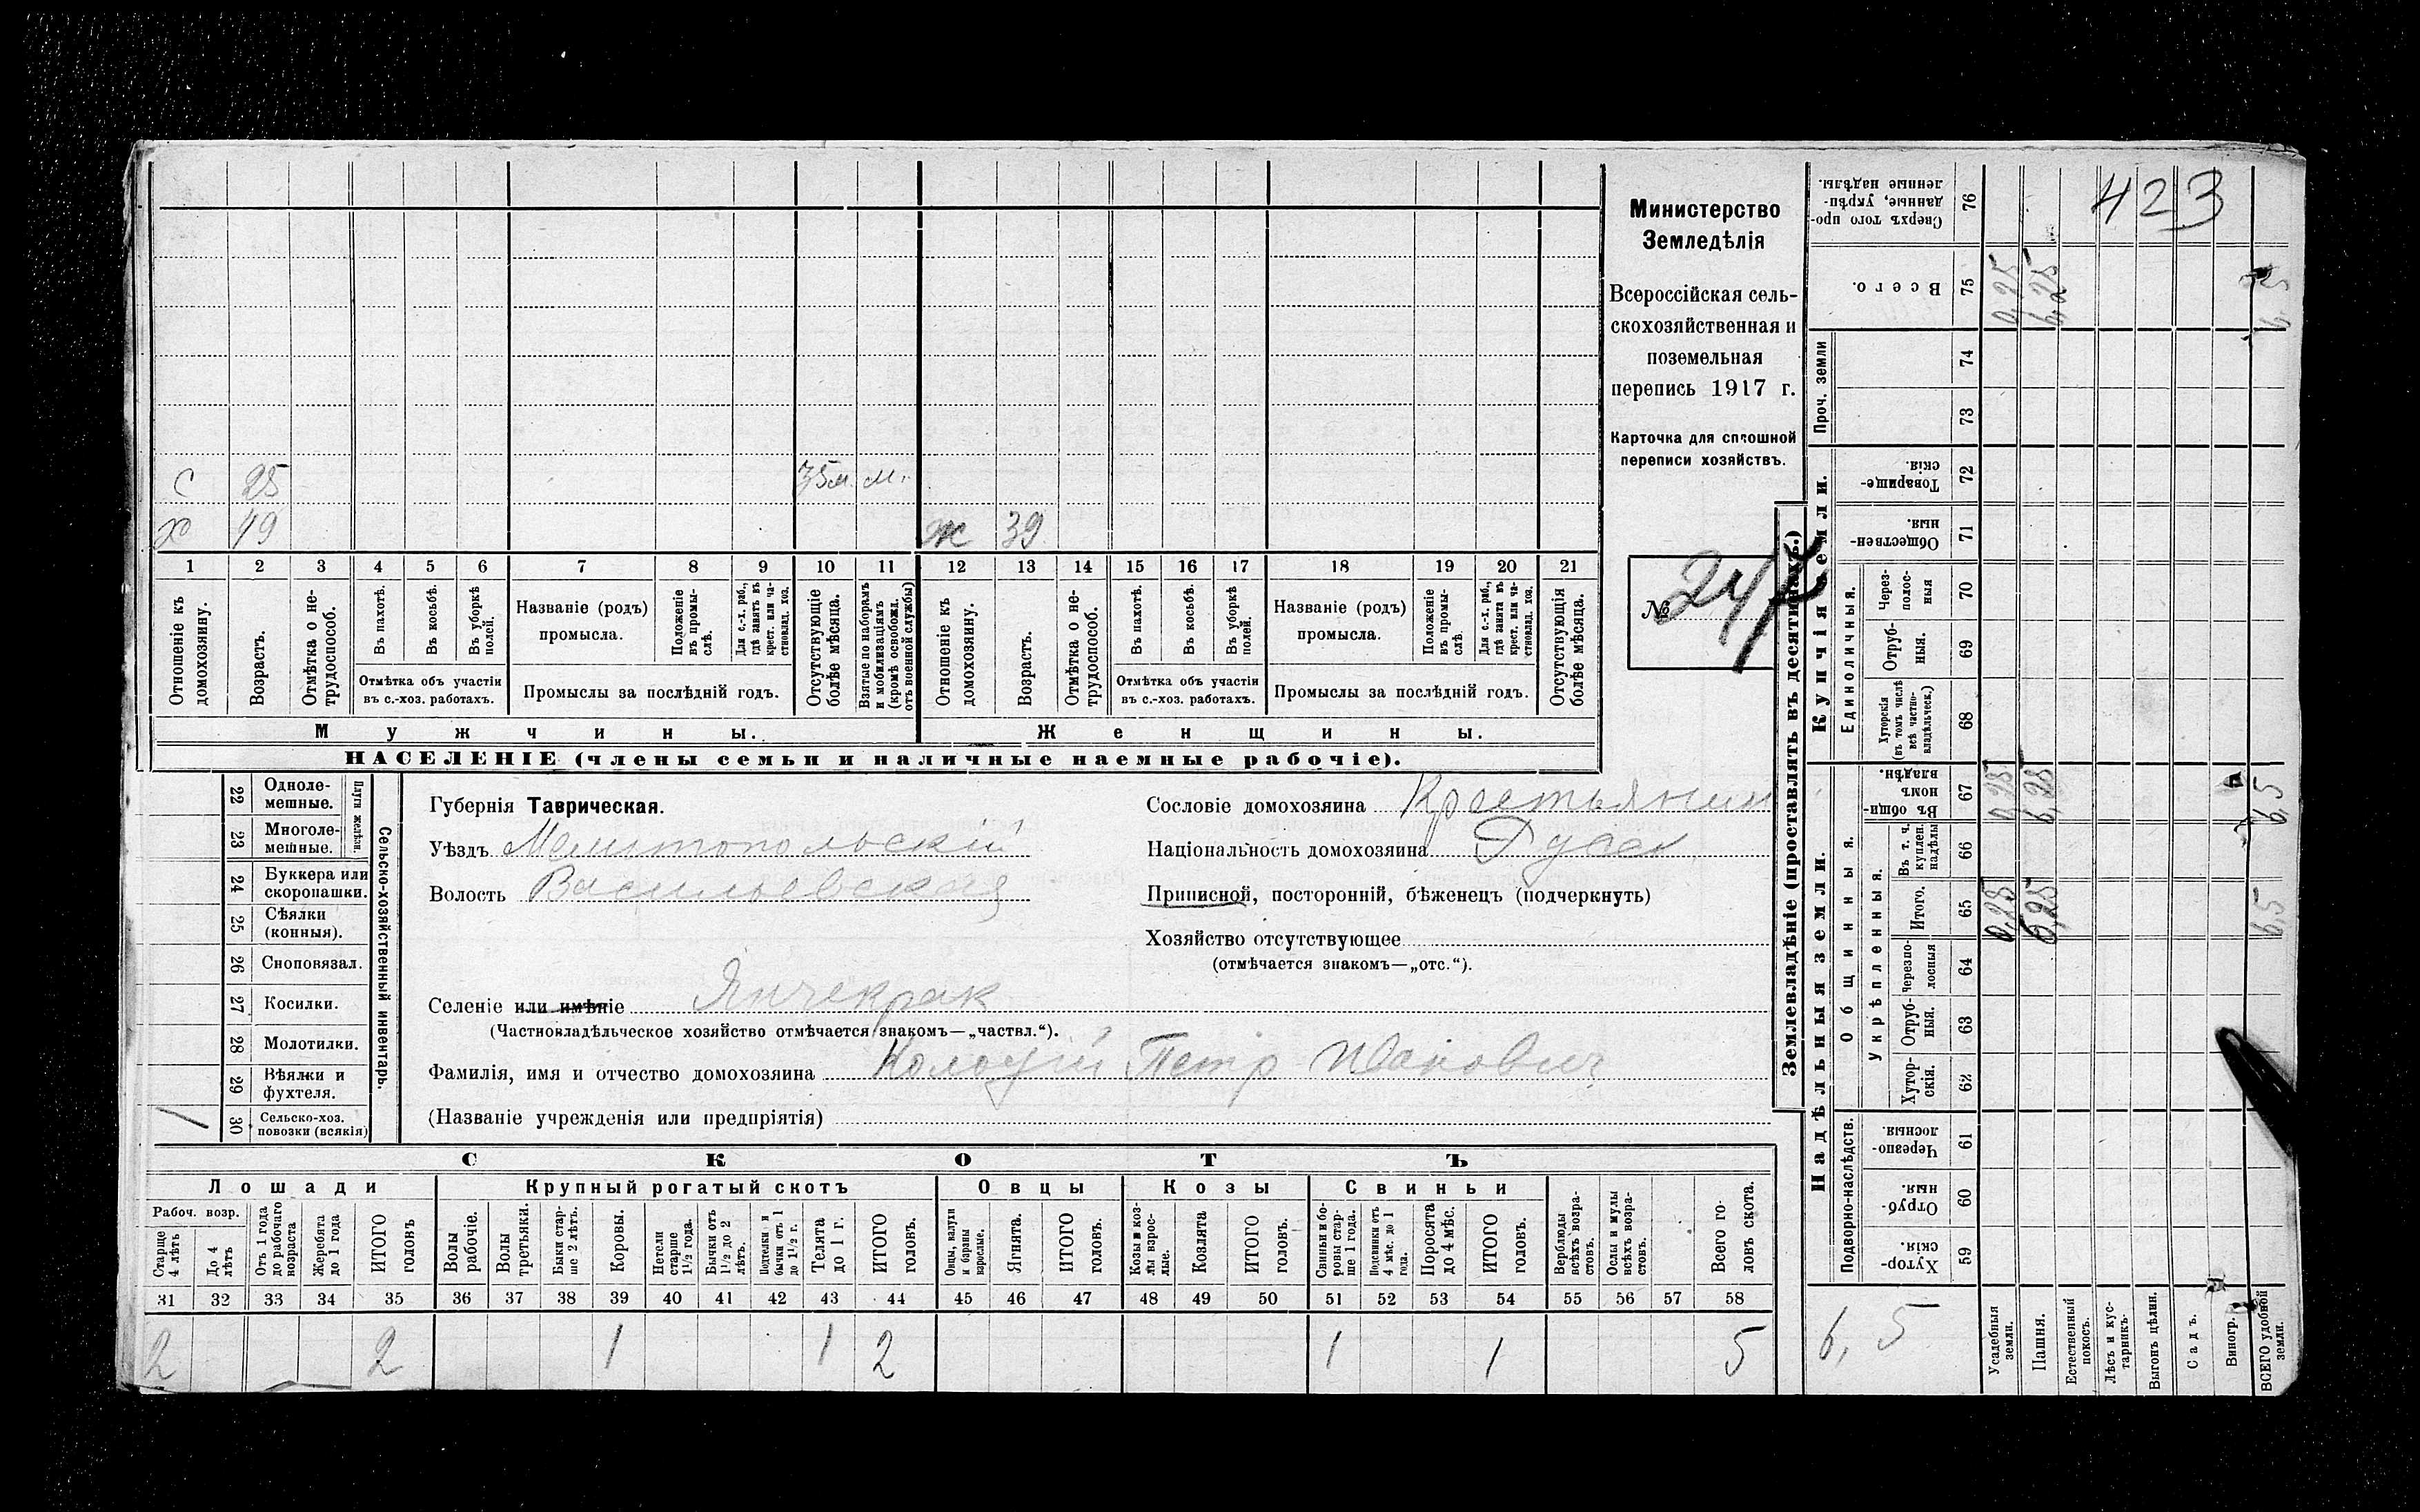 423
Министерство
Земледѣлія
Всероссійская сель-
скохозяйственная и
поземельная
перепись 1917 г.
Карточка для сплошной
переписи хозяйствъ.
№ 247
С 25 35м. м.
х 49 ж 39
1 2 3 4 5 6 7 8 9 10 11 12 13 14 15 16 17 18 19 20 21
Отношеніе къ домохозяину.
Возрастъ.
Отмѣтка о не-трудоспособ.
Въ пахотѣ.
Въ косьбѣ.
Въ уборкѣ полей.
Отмѣтка объ участіи
въ с.-хоз. работахъ.
Названіе (родъ)
промысла.
Положеніе въ промы-слѣ.
Для с.-х. раб., гдѣ занятъ въ крест. или ча-стновлад. хоз.
Промыслы за послѣдній годъ.
Отсутствующіе болѣе мѣсяца.
Взятые по наборамъ и мобилизаціямъ (кромѣ освобожд. отъ военной службы)
Отношеніе къ домохозяину.
Возрастъ.
Отмѣтка о не-трудоспособ.
Въ пахотѣ.
Въ косьбѣ.
Въ уборкѣ полей.
Отмѣтка объ участіи
въ с.-хоз. работахъ.
Названіе (родъ)
промысла.
Положеніе въ промы-слѣ.
Для с.-х. раб., гдѣ занята въ крест. или ча-стновлад. хоз.
Промыслы за послѣдній годъ.
Отсутствующія болѣе мѣсяца.
Мужчины. Женщины.
НАСЕЛЕНІЕ (члены семьи и наличные наемные рабочіе).
Сельско-хозяйственный инвентарь.
Плуги желѣзн.
22 Одноле-мешные.
23 Многоле-мешные.
24 Буккера или скоропашки.
25 Сѣялки (конныя).
26 Сноповязал.
27 Косилки.
28 Молотилки.
29 Вѣялки и фухтеля.
30 Сельско-хоз. повозки (всякія) 1
Губернія Таврическая.
Уѣздъ Мелитопольскій
Волость Васильевская
Селеніе или имѣніе Янчекрак
(Частновладѣльческое хозяйство отмѣчается знакомъ—„частвл.“).
Фамилія, имя и отчество домохозяина Колодій Петр Иванович
(Названіе учрежденія или предпріятія)
Сословіе домохозяина Крестьянин
Національность домохозяина Русак
Приписной, посторонній, бѣженецъ (подчеркнуть)
Хозяйство отсутствующее
(отмѣчается знакомъ—„отс.“).
СКОТЪ
Лошади Крупный рогатый скотъ Овцы Козы Свиньи
Рабоч. возр.
Старше 4 лѣтъ
До 4 лѣтъ
Отъ 1 года до рабочаго возраста
Жеребята до 1 года
ИТОГО головъ
Волы рабочіе.
Волы третьяки.
Быки стар-ше 2 лѣтъ.
Коровы.
Нетели старше 1½ года.
Бычки отъ 1½ до 2 лѣтъ.
Подтелки и бычки отъ 1 до 1½ г.
Телята до 1 г.
ИТОГО головъ.
Овцы, валухи и бараны взрослые.
Ягнята.
ИТОГО головъ.
Козы и коз-лы взрос-лые.
Козлята
ИТОГО головъ.
Свиньи и бо-ровы стар-ше 1 года.
Подсвинки отъ 4 мѣс. до 1 года.
Поросята до 4 мѣс.
ИТОГО головъ.
Верблюды всѣхъ возра-стовъ.
Ослы и мулы всѣхъ возра-стовъ.
Всего го-ловъ скота.
31 32 33 34 35 36 37 38 39 40 41 42 43 44 45 46 47 48 49 50 51 52 53 54 55 56 57 58
2 2 1 1 2 1 1 5
Землевладѣніе (проставлять въ десятинахъ.)
Надѣльныя земли. Купчія земли.
Проч. земли
Подворно-наслѣдств.
Общинныя.
Укрѣпленныя.
Единоличныя.
76 Сверхъ того про-данные, укрѣп-ленные надѣлы.
75 Всего. 0,25 6,25 6,5
74
73
72 Товарище-скія.
71 Обществен-ныя.
70 Через-полос-ныя
69 Отруб-ныя.
68 Хуторскія (въ томъ числѣ всѣ частно-владѣльческ.)
67 Въ общи-номъ владѣн. 0,25 6,25 6,5
66 Въ т. ч. куплен. надѣлы
65 Итого. 0,25 6,25 6,5
64 Черезпо-лосныя
63 Отруб-ныя.
62 Хутор-скія.
61 Черезпо-лосныя.
60 Отруб-ныя.
59 Хутор-скія
6,5
Усадебныя земли.
Пашня.
Естественный покосъ.
Лѣсъ и кус-тарникъ.
Выгонъ цѣлин.
Садъ.
Виногр.
ВСЕГО удобной земли.